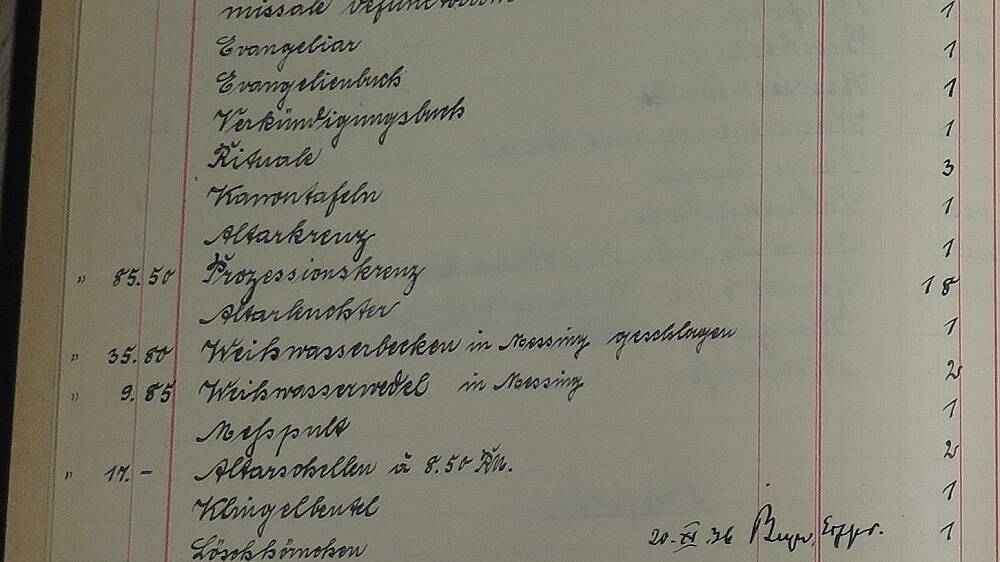 missale defunctorum 1
Evangeliar 1
Evangelienbuch 1
Verkündigungsbuch 1
Rituale 3
Kanontafeln 1
Altarkreuz 1
" 85.50 Prozessionskreuz 18
Altarleuchter 1
" 35.80 Weihwasserbecken in Messing geschlagen 2
" 9.85 Weihwasserwedel in Messing 1
Meßpult 2
" 17.- Altarschellen à 8.50 Rm. 1
Klingelbeutel 1
Löschhörnchen 20. XI 36